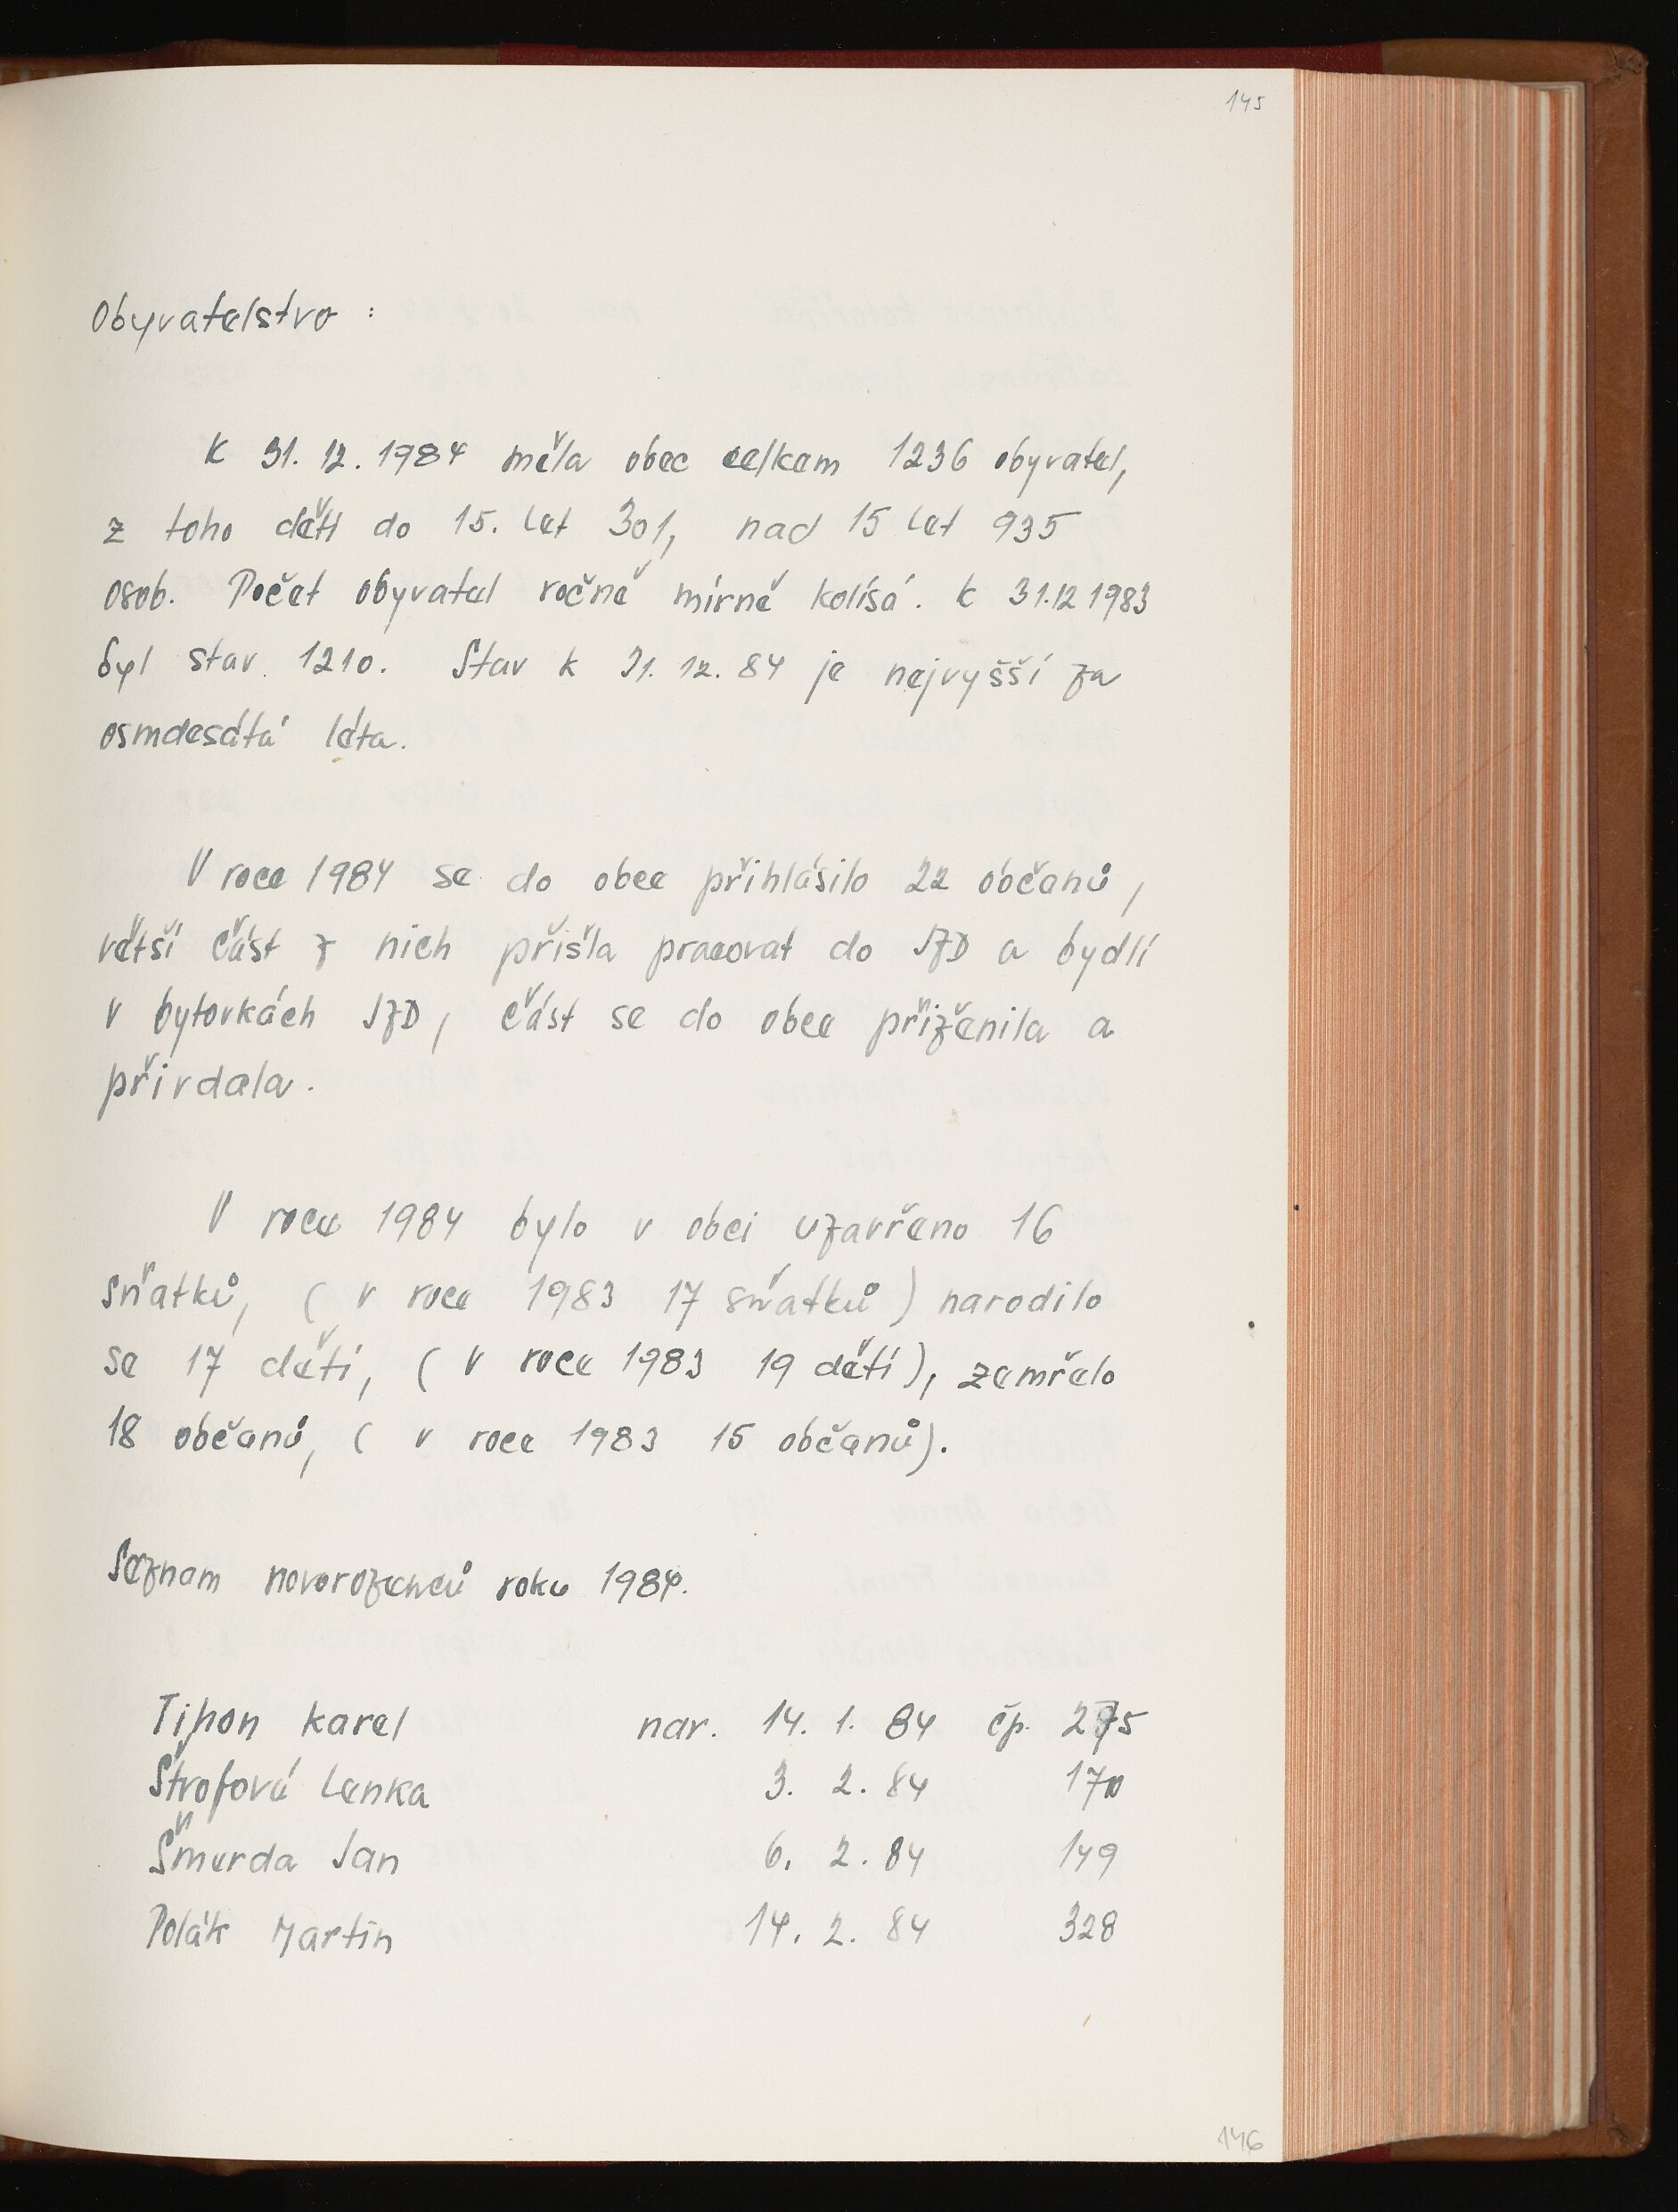 145
Obyvatelstvo :
K 31. 12. 1984 měla obec celkem 1236 obyvatel,
z toho dětí do 15. let 301, nad 15 let 935
osob. Počet obyvatel ročně mírně kolísá. K 31.12 1983
byl stav 1210. Stav k 31. 12. 84 je nejvyšší za
osmdesátá léta.
V roce 1984 se do obce přihlásilo 22 občanů,
větší část z nich přišla pracovat do JZD a bydlí
v bytovkách JZD, část se do obce přiženila a
přivdala.
V roce 1984 bylo v obci uzavřeno 16
sňatků, ( v roce 1983 17 sňatků ) narodilo
se 17 dětí, ( v roce 1983 19 dětí), zemřelo
18 občanů, ( v roce 1983 15 občanů).
Seznam novorozenců roku 1984.
Tihon Karel nar. 14. 1. 84 čp. 275
Štrofová Lenka 3. 2. 84 170
Šmerda Jan 6. 2. 84 149
Polák Martin 14. 2. 84 328
146